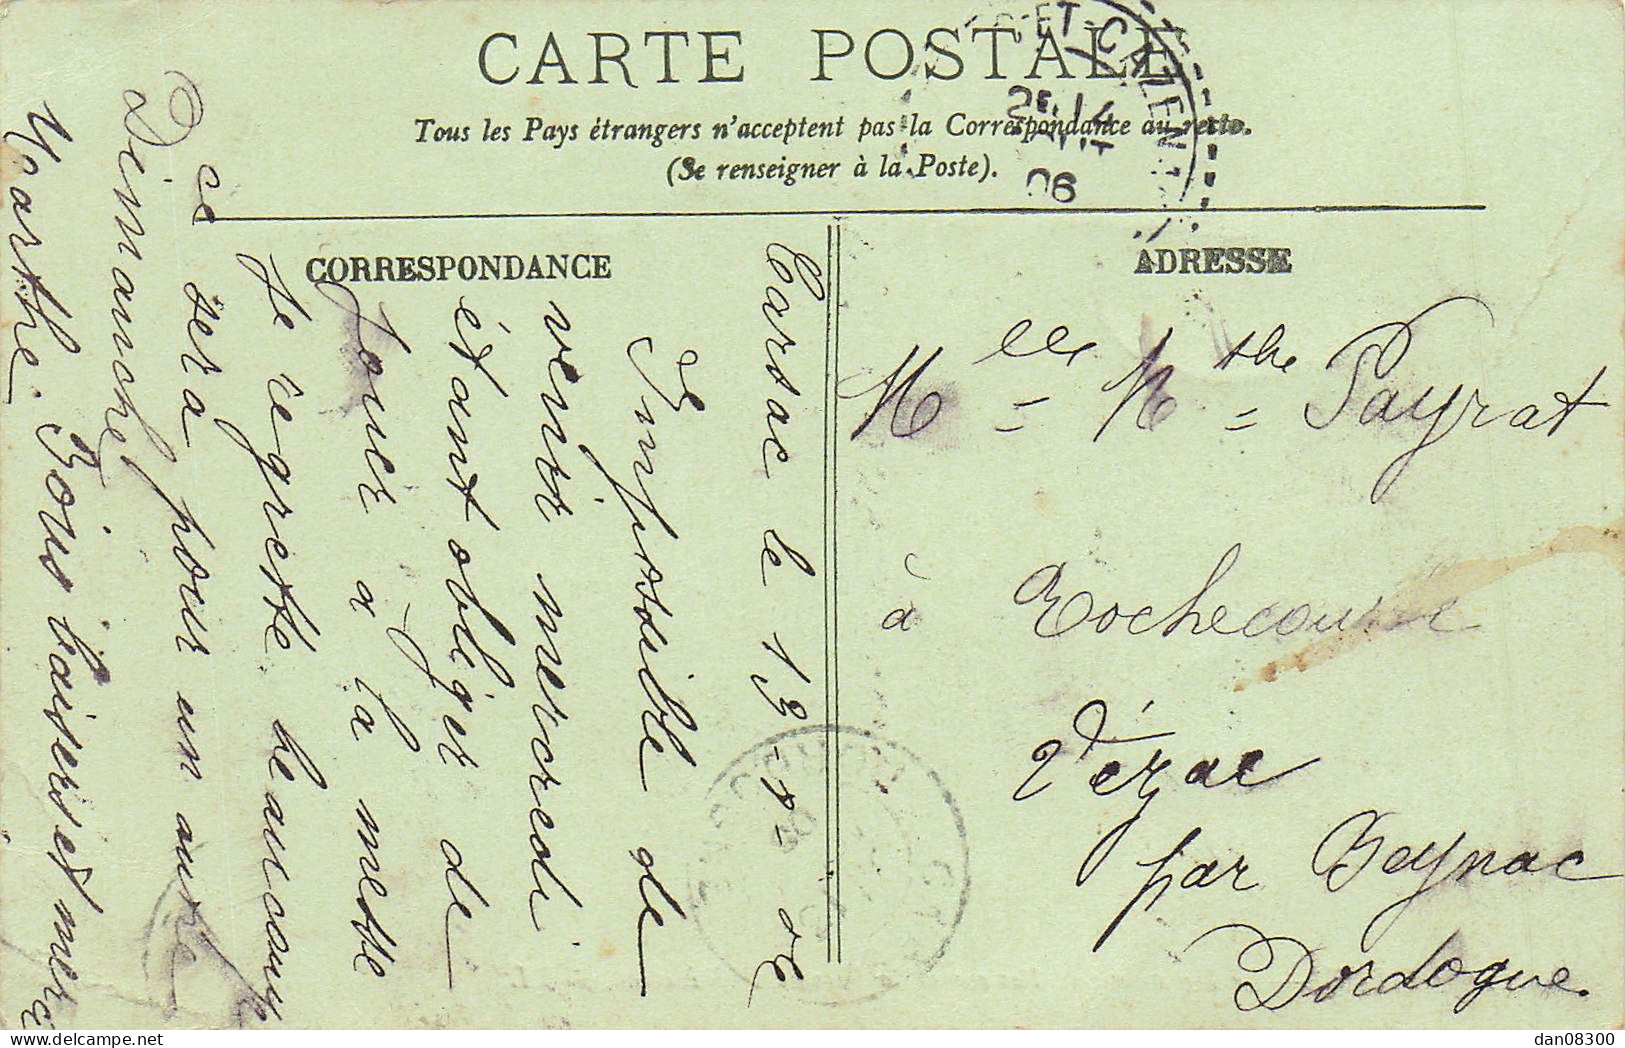 CARTE POSTALE
Tous les Pays étrangers n'acceptent pas la Correspondance au recto.
(Se renseigner à la Poste).
ET-CAZEN
14
06
CORRESPONDANCE
ADRESSE
Carsac le 13-8-06
Impossible de
venir mercredi
étant obligés de
jouer à la messe
Je regrette beaucoup
ce sera pour un autre
Dimanche
Marthe. Bons baisers et merci
Mlle = Mthe = Payrat
à Rochecourbe
Vézac
par Beynac
Dordogne
dan08300